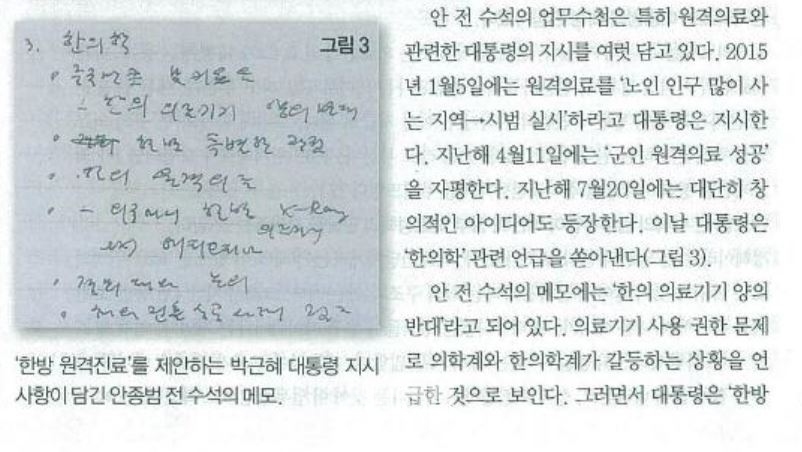 3. 한의학
그림 3
- 한의 의료기기 양의 반대
한방 특별한 관련
한의 원격의료
- 의료기기 한방 X-Ray
ex)
논의
'한방 원격진료'를 제안하는 박근혜 대통령 지시
사항이 담긴 안종범 전 수석의 메모.
안 전 수석의 업무수첩은 특히 원격의료와
관련한 대통령의 지시를 여럿 담고 있다. 2015
년 1월5일에는 원격의료를 '노인 인구 많이 사
는 지역→시범 실시'하라고 대통령은 지시한
다. 지난해 4월11일에는 '군인 원격의료 성공'
을 자평한다. 지난해 7월20일에는 대단히 창
의적인 아이디어도 등장한다. 이날 대통령은
'한의학' 관련 언급을 쏟아낸다(그림 3).
안 전 수석의 메모에는 '한의 의료기기 양의
반대'라고 되어 있다. 의료기기 사용 권한 문제
로 의학계와 한의학계가 갈등하는 상황을 언
급한 것으로 보인다. 그러면서 대통령은 '한방